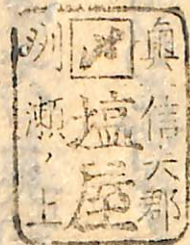 奥刕
信夫郡
塩屋
瀬ノ上